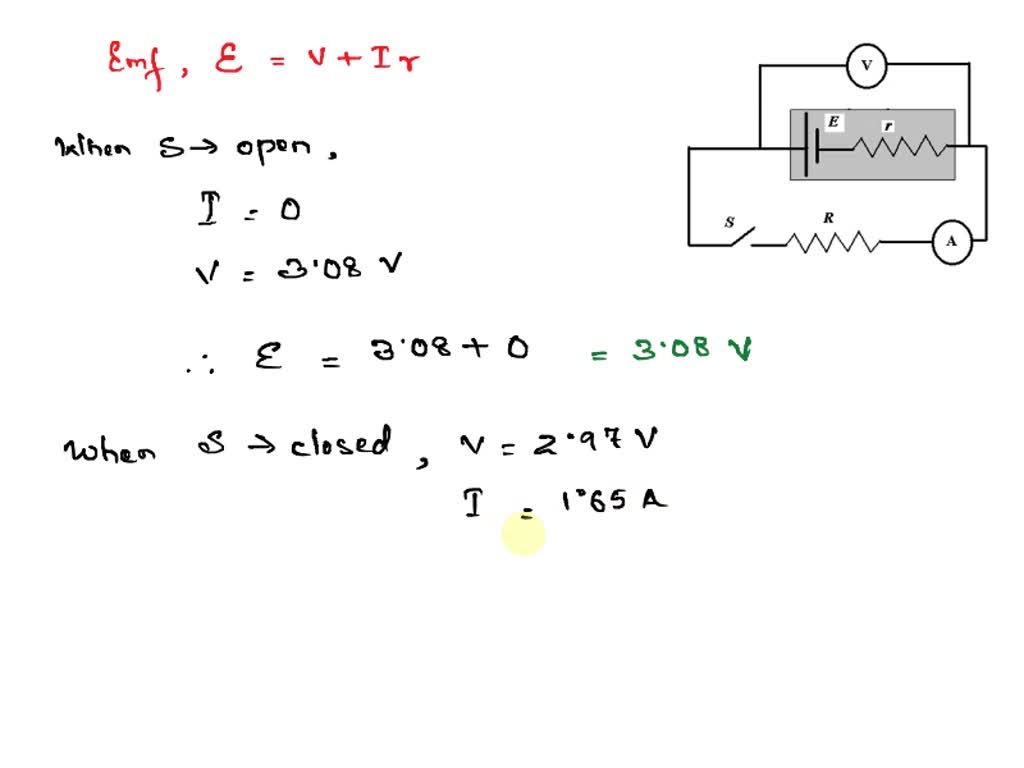 Emf, ε = V + Ir
When S → open,
I = 0
V = 3.08 V
∴ ε = 3.08 + 0 = 3.08 V
When S → closed, V = 2.97 V
I = 1.65 A
V
E r
S R A